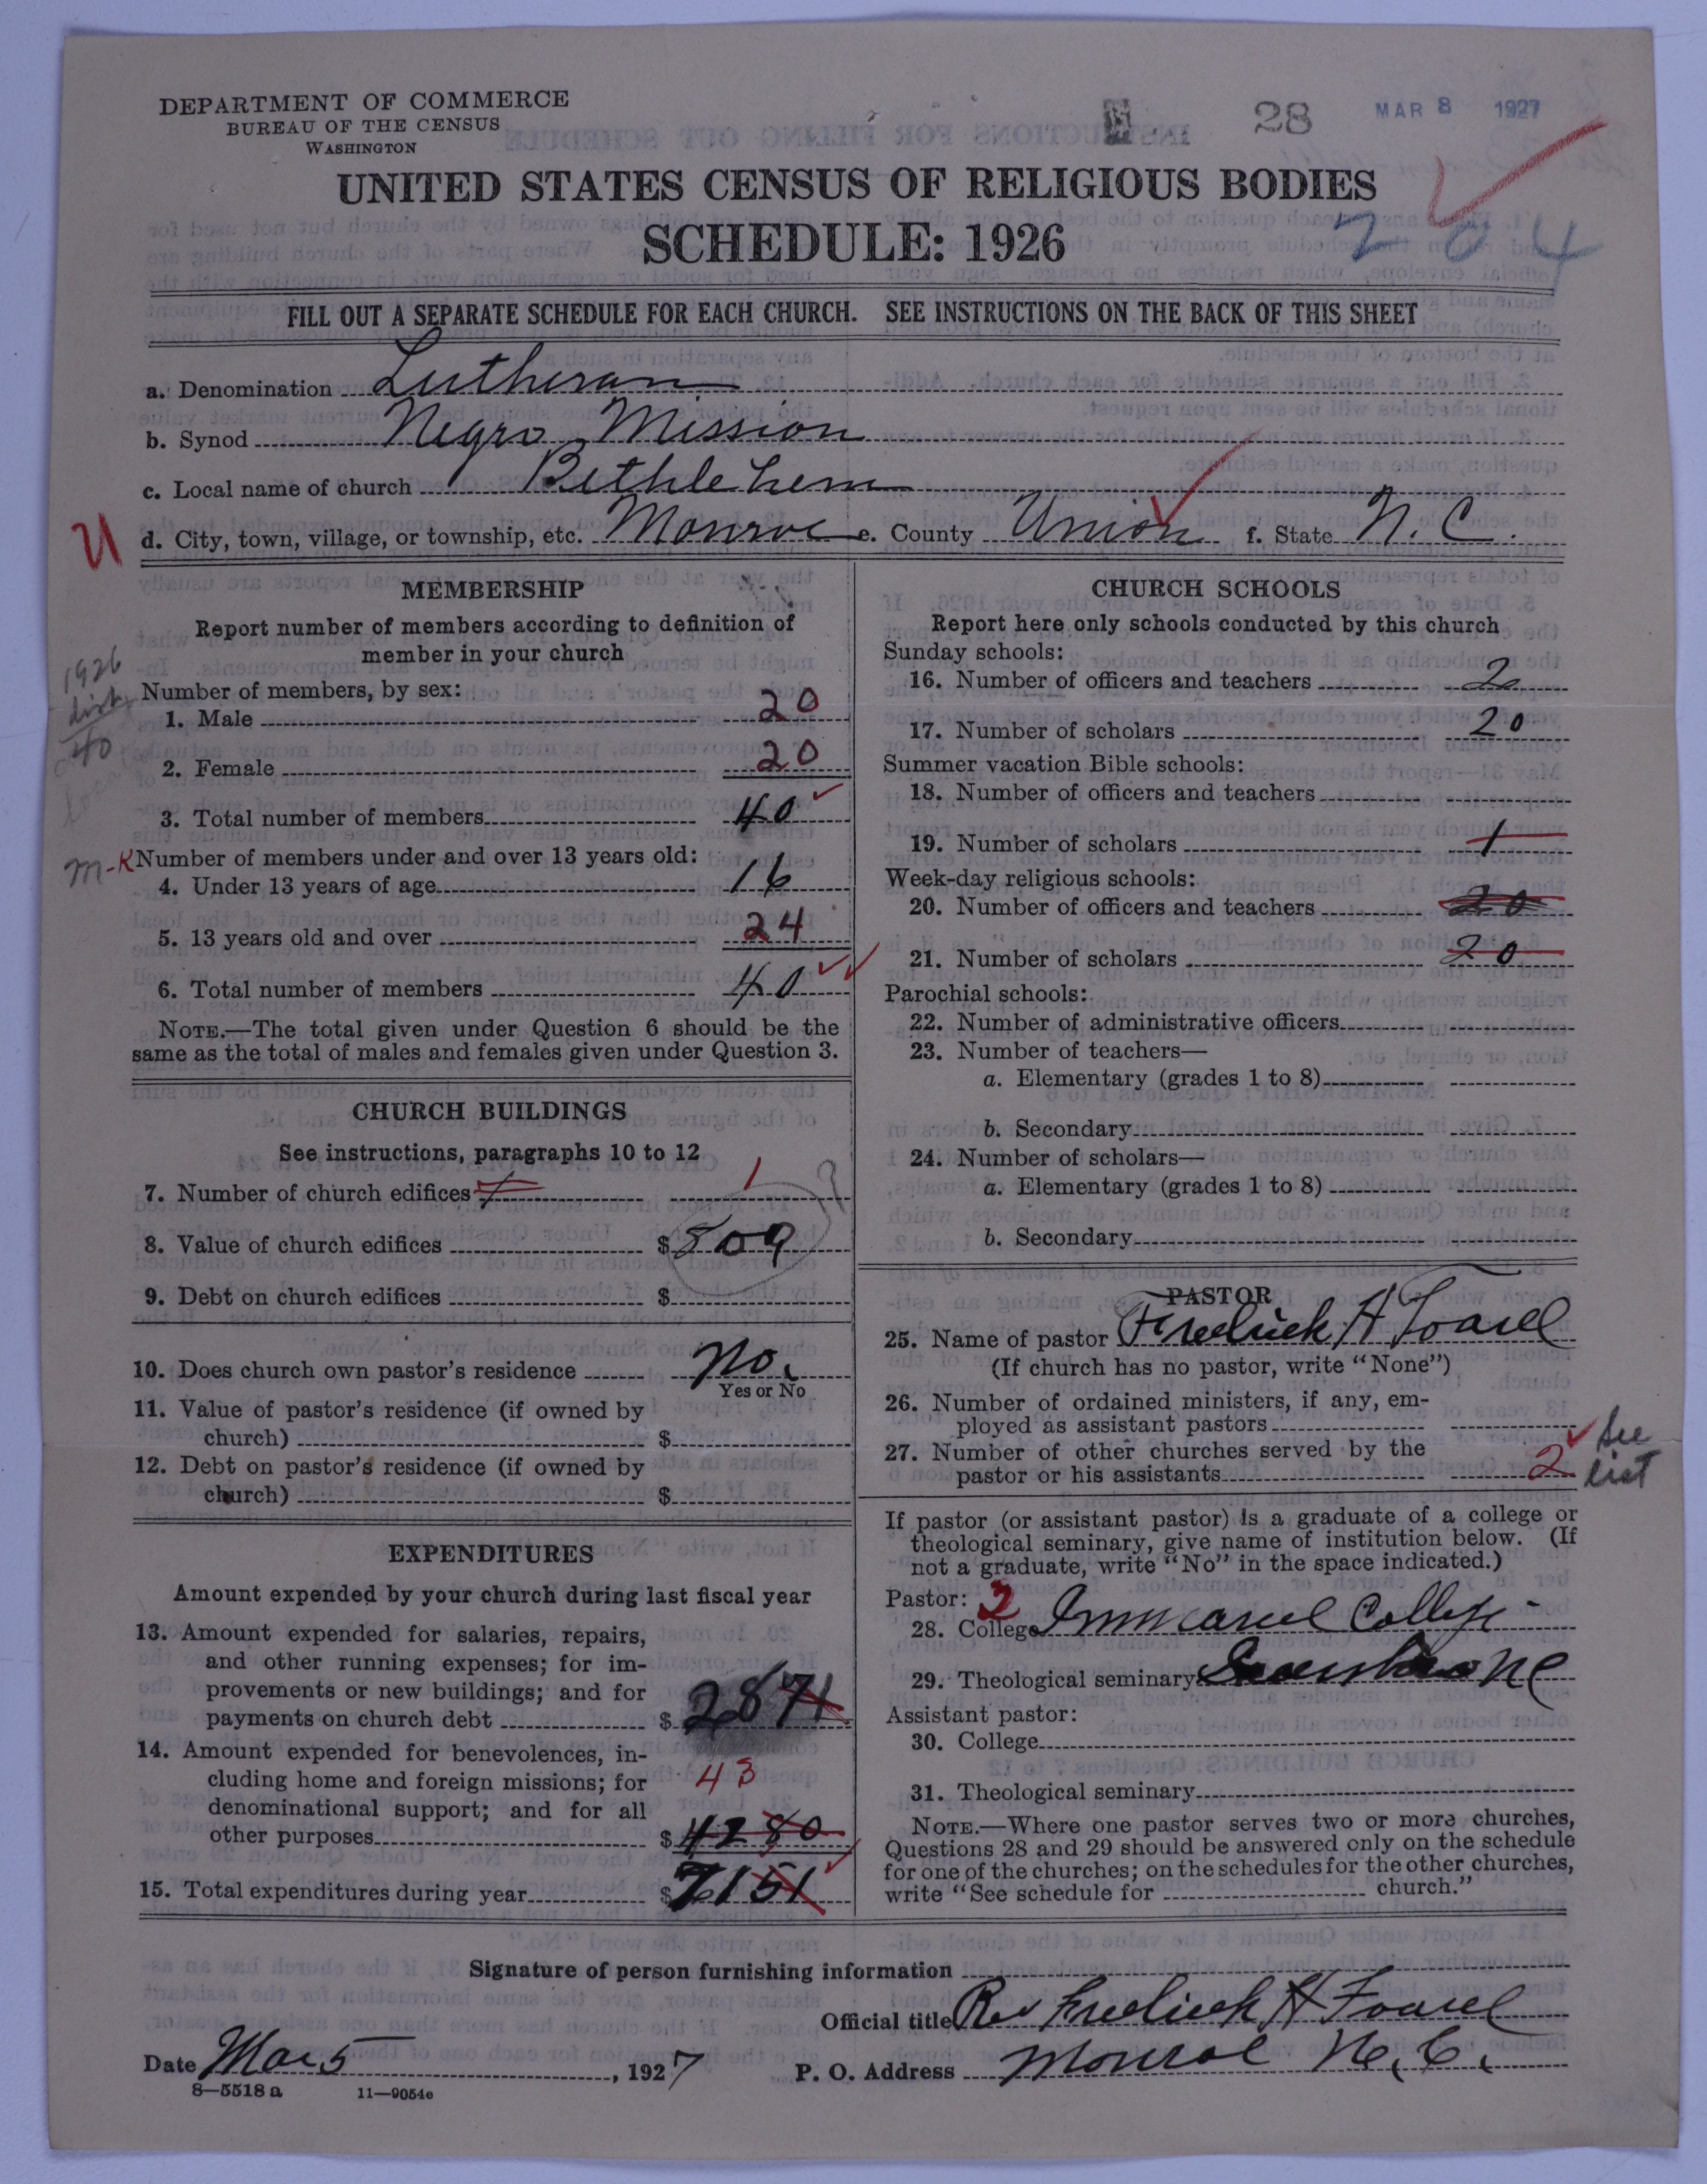 DEPARTMENT OF COMMERCE
BUREAU OF THE CENSUS
WASHINGTON
28 MAR 8 1927
UNITED STATES CENSUS OF RELIGIOUS BODIES
SCHEDULE: 1926
204
FILL OUT A SEPARATE SCHEDULE FOR EACH CHURCH. SEE INSTRUCTIONS ON THE BACK OF THIS SHEET
a. Denomination Lutheran
b. Synod Negro Mission
c. Local name of church Bethlehem
U d. City, town, village, or township, etc. Monroe e. County Union f. State N. C.
MEMBERSHIP
Report number of members according to definition of
member in your church
1926
40
Number of members, by sex:
1. Male 20
2. Female 20
3. Total number of members 40
M-K Number of members under and over 13 years old:
4. Under 13 years of age 16
5. 13 years old and over 24
6. Total number of members 40
NOTE.—The total given under Question 6 should be the
same as the total of males and females given under Question 3.
CHURCH BUILDINGS
See instructions, paragraphs 10 to 12
7. Number of church edifices 1
8. Value of church edifices $ 809
9. Debt on church edifices $
10. Does church own pastor's residence No.
Yes or No
11. Value of pastor's residence (if owned by
church) $
12. Debt on pastor's residence (if owned by
church) $
EXPENDITURES
Amount expended by your church during last fiscal year
13. Amount expended for salaries, repairs,
and other running expenses; for im-
provements or new buildings; and for
payments on church debt $ 2871
14. Amount expended for benevolences, in-
cluding home and foreign missions; for 43
denominational support; and for all
other purposes $ 4280
15. Total expenditures during year $ 7151
CHURCH SCHOOLS
Report here only schools conducted by this church
Sunday schools:
16. Number of officers and teachers 2
17. Number of scholars 20
Summer vacation Bible schools:
18. Number of officers and teachers
19. Number of scholars 1
Week-day religious schools:
20. Number of officers and teachers 20
21. Number of scholars 20
Parochial schools:
22. Number of administrative officers
23. Number of teachers—
a. Elementary (grades 1 to 8)
b. Secondary
24. Number of scholars—
a. Elementary (grades 1 to 8)
b. Secondary
PASTOR
25. Name of pastor Fredrick H Foard
(If church has no pastor, write "None")
26. Number of ordained ministers, if any, em-
ployed as assistant pastors
27. Number of other churches served by the
pastor or his assistants 2 See list
If pastor (or assistant pastor) is a graduate of a college or
theological seminary, give name of institution below. (If
not a graduate, write "No" in the space indicated.)
Pastor: 2
28. College Immanuel College
29. Theological seminary Greensboro NC
Assistant pastor:
30. College
31. Theological seminary
NOTE.—Where one pastor serves two or more churches,
Questions 28 and 29 should be answered only on the schedule
for one of the churches; on the schedules for the other churches,
write "See schedule for church."
Signature of person furnishing information
Official title Rev Fredrick H Foard
Date Mar 5, 1927 P. O. Address Monroe N. C.
8—5518 a 11—9054e